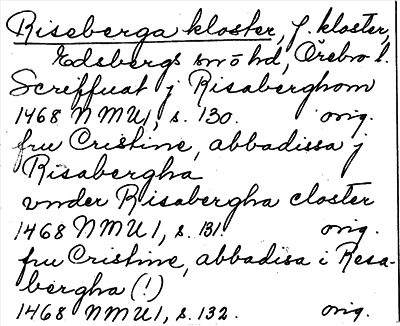 Riseberga kloster, f. kloster,
Edsbergs sn ö hd, Örebro l.
Screffuat j Risaberghom
1468 NMU 1, s. 130. orig.
fru Cristine, abbadissa j
Risabergha
vnder Risabergha closter
1468 NMU 1, s. 131. orig.
fru Cristine, abbadisa i Resa-
bergha (!)
1468 NMU 1, s. 132. orig.